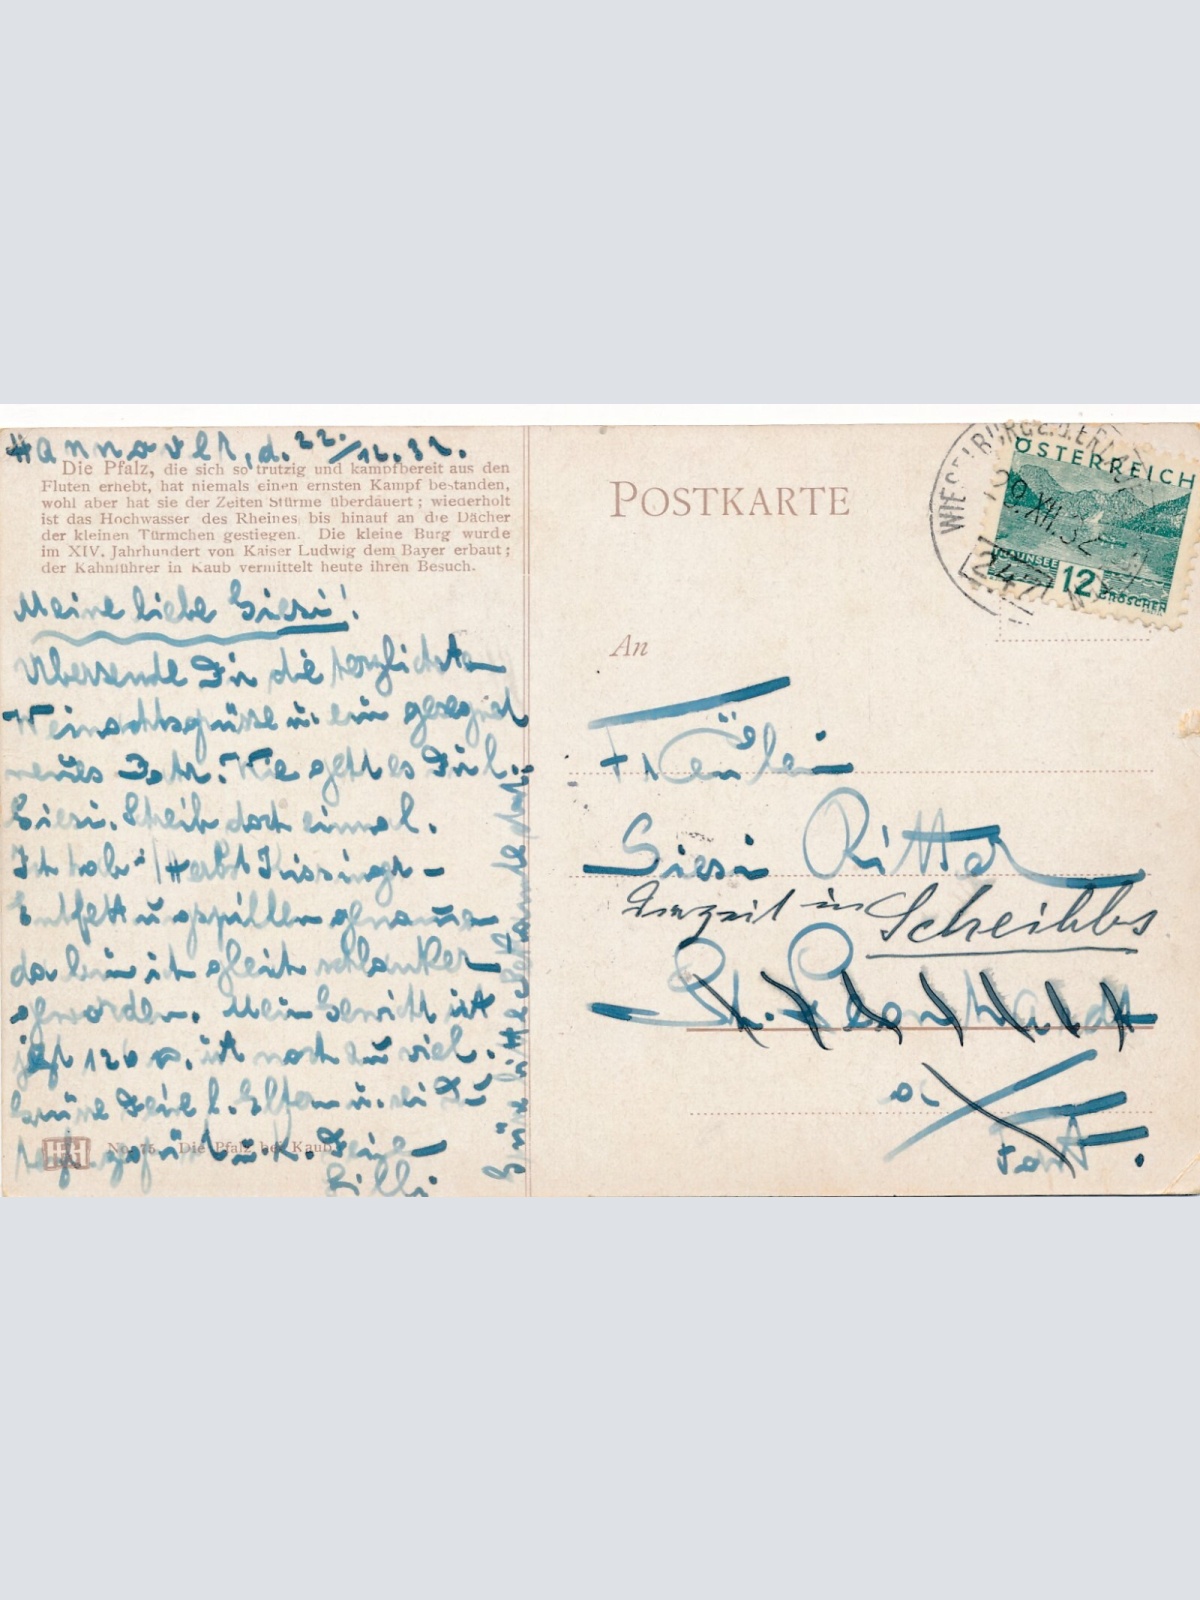 Hannover, d. 22./12.32.
Die Pfalz, die sich so trutzig und kampfbereit aus den
Fluten erhebt, hat niemals einen ernsten Kampf bestanden,
wohl aber hat sie der Zeiten Stürme überdauert; wiederholt
ist das Hochwasser des Rheines bis hinauf an die Dächer
der kleinen Türmchen gestiegen. Die kleine Burg wurde
im XIV. Jahrhundert von Kaiser Ludwig dem Bayer erbaut;
der Kahnführer in Kaub vermittelt heute ihren Besuch.
Meine liebe Giesi!
Übersende Dir die herzlichsten
Weinachtsgrüsse u. ein gesegnet
neues Jahr. Wie geht es Dir l.
Giesi. Schreib doch einmal.
Ich hab' Herbst Kissinger-
Entfettungspillen genommen
da bin ich gleich schlanker
geworden. Mein Gewicht ist
jetzt 120 ist noch zu viel.
Grüse Deine l. Eltern u. sei Du
No. 75. Die Pfalz bei Kaub
Deine
Cilli
POSTKARTE
An
Fräulein
Giesi Ritter
Derzeit in Scheibbs
St. Leonhardt
a/
Forst.
ÖSTERREICH
TRAUNSEE
12 GROSCHEN
WIESELBURG A.D. ERLAUF
29.XII.32